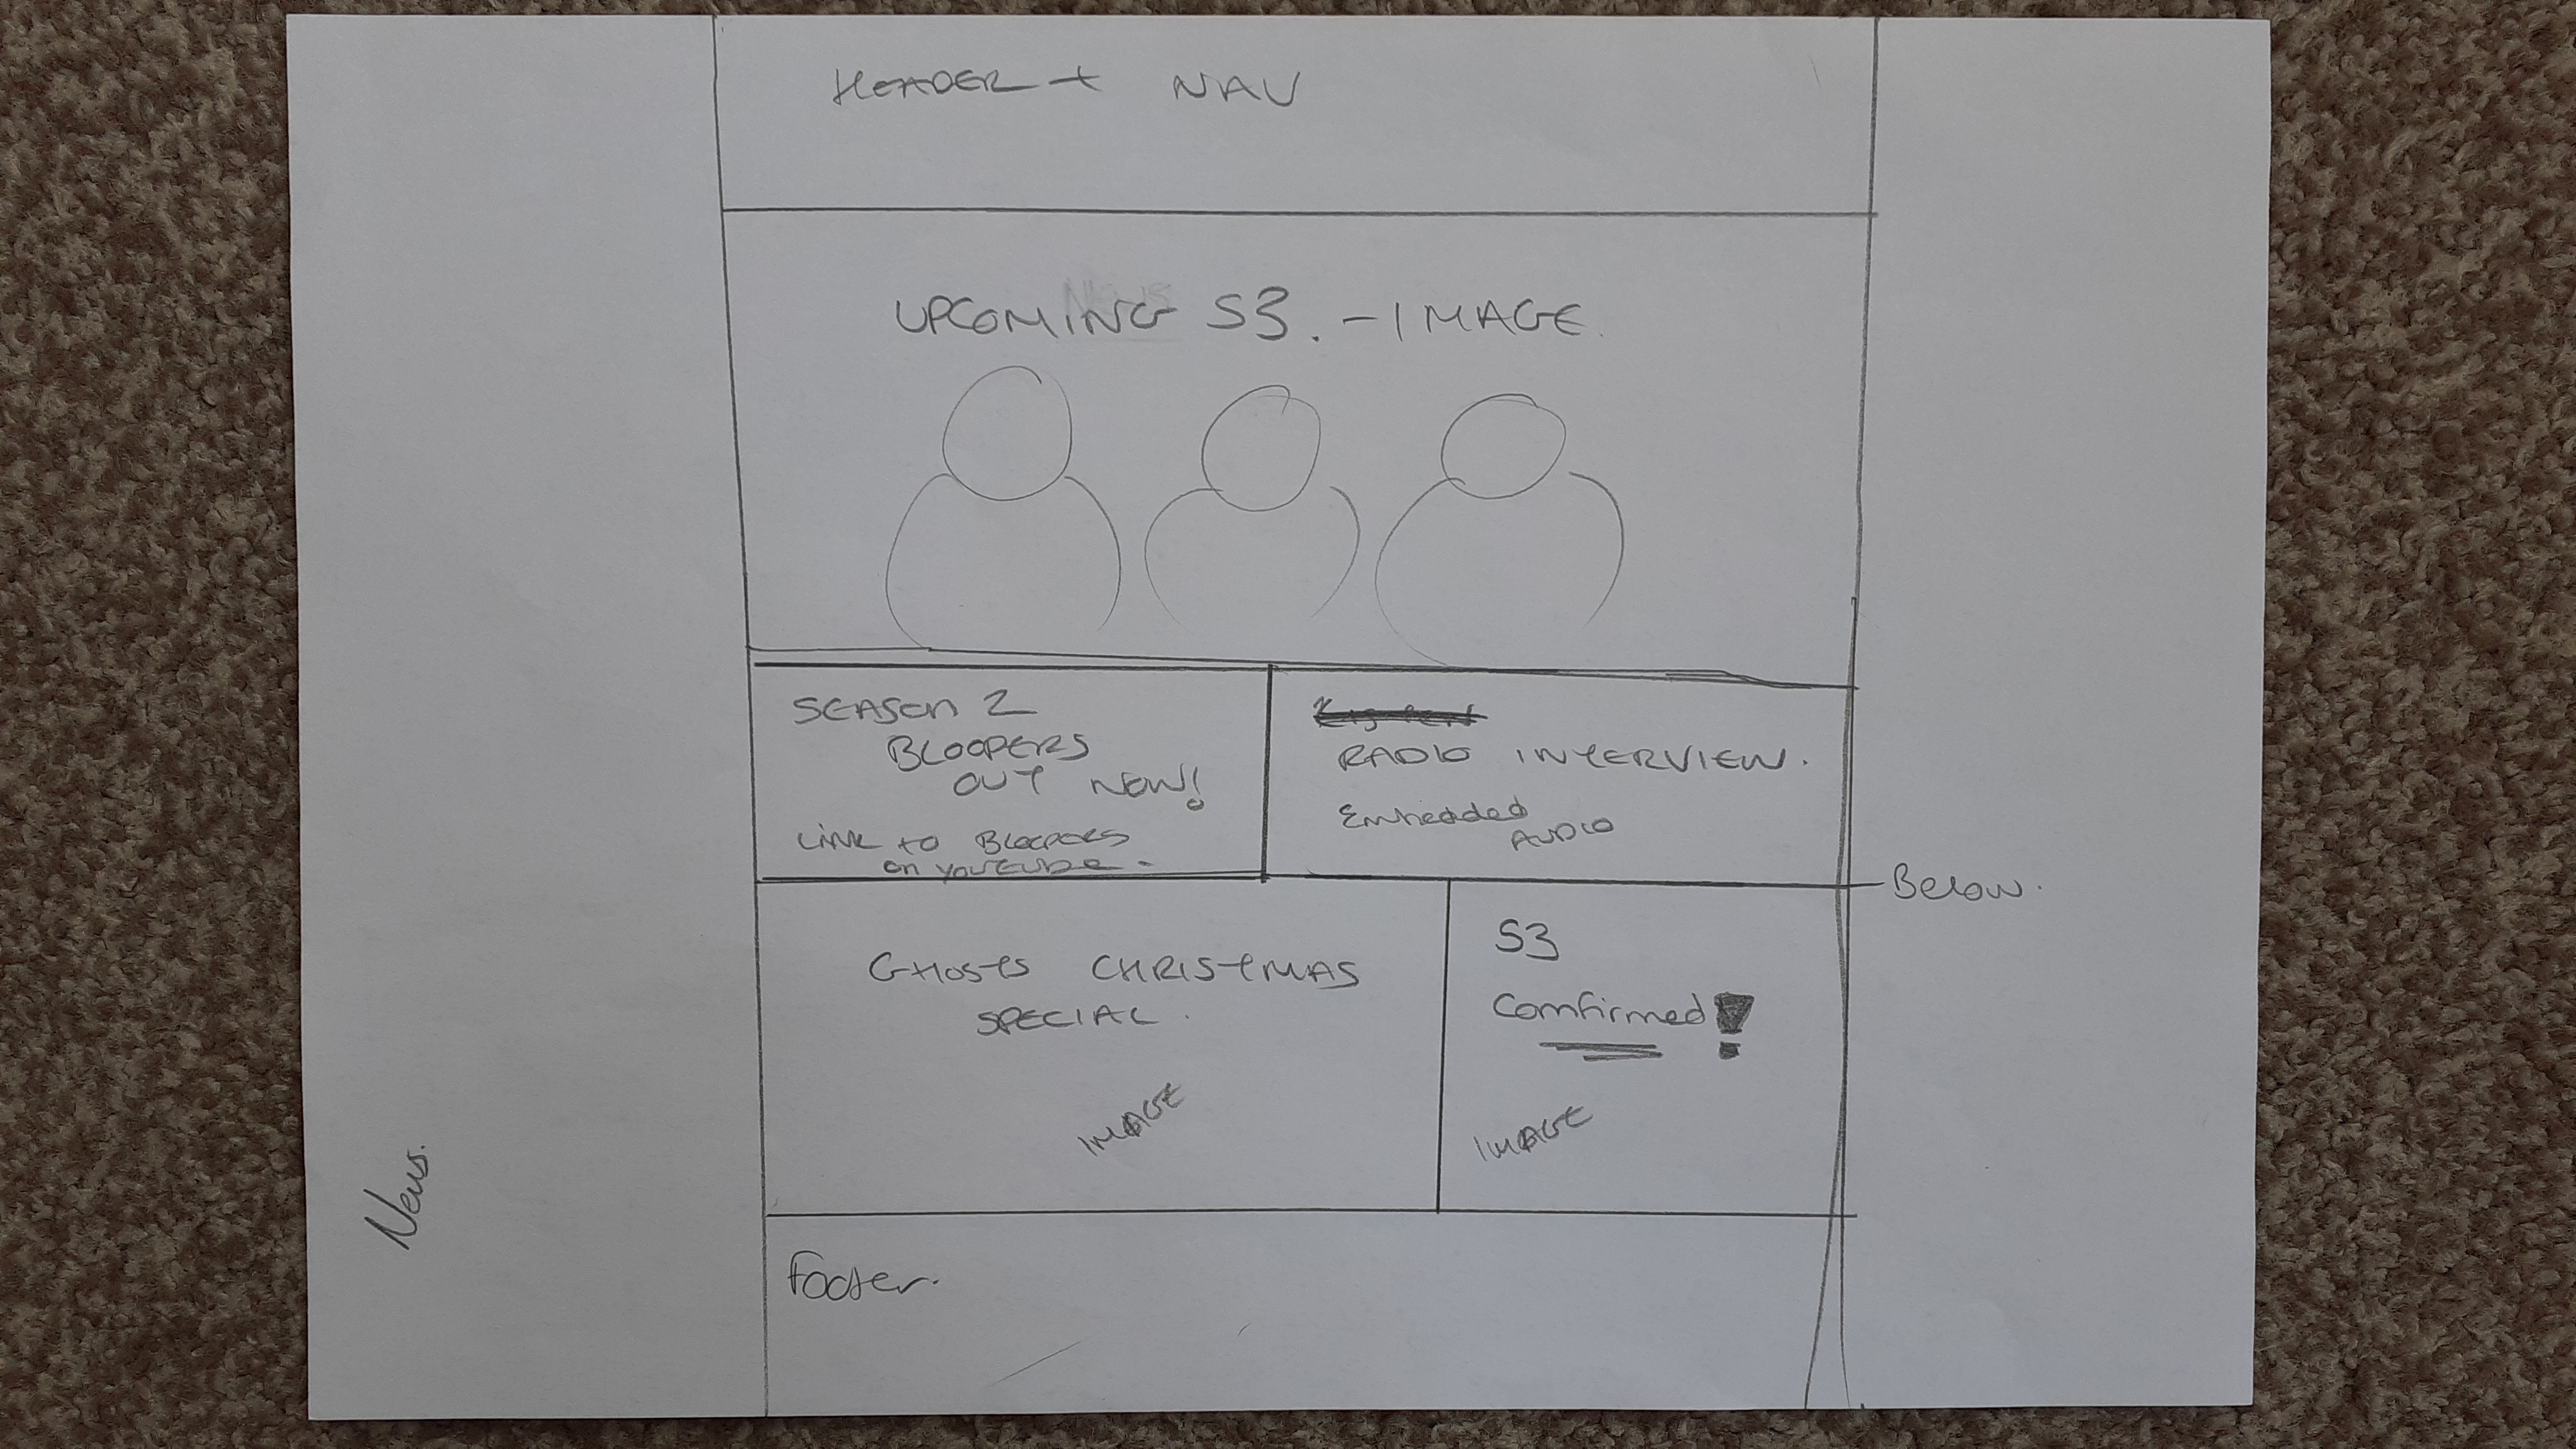 HEADER + NAV
UPCOMING S3. - IMAGE.
SEASON 2
BLOOPERS
OUT NOW!
LINK TO BLOOPERS
on YOUTUBE -
RADIO INTERVIEW.
Embedded
AUDIO
Below.
GHOSTS CHRISTMAS
SPECIAL.
IMAGE
S3
Comfirmed!
IMAGE
News.
Footer.